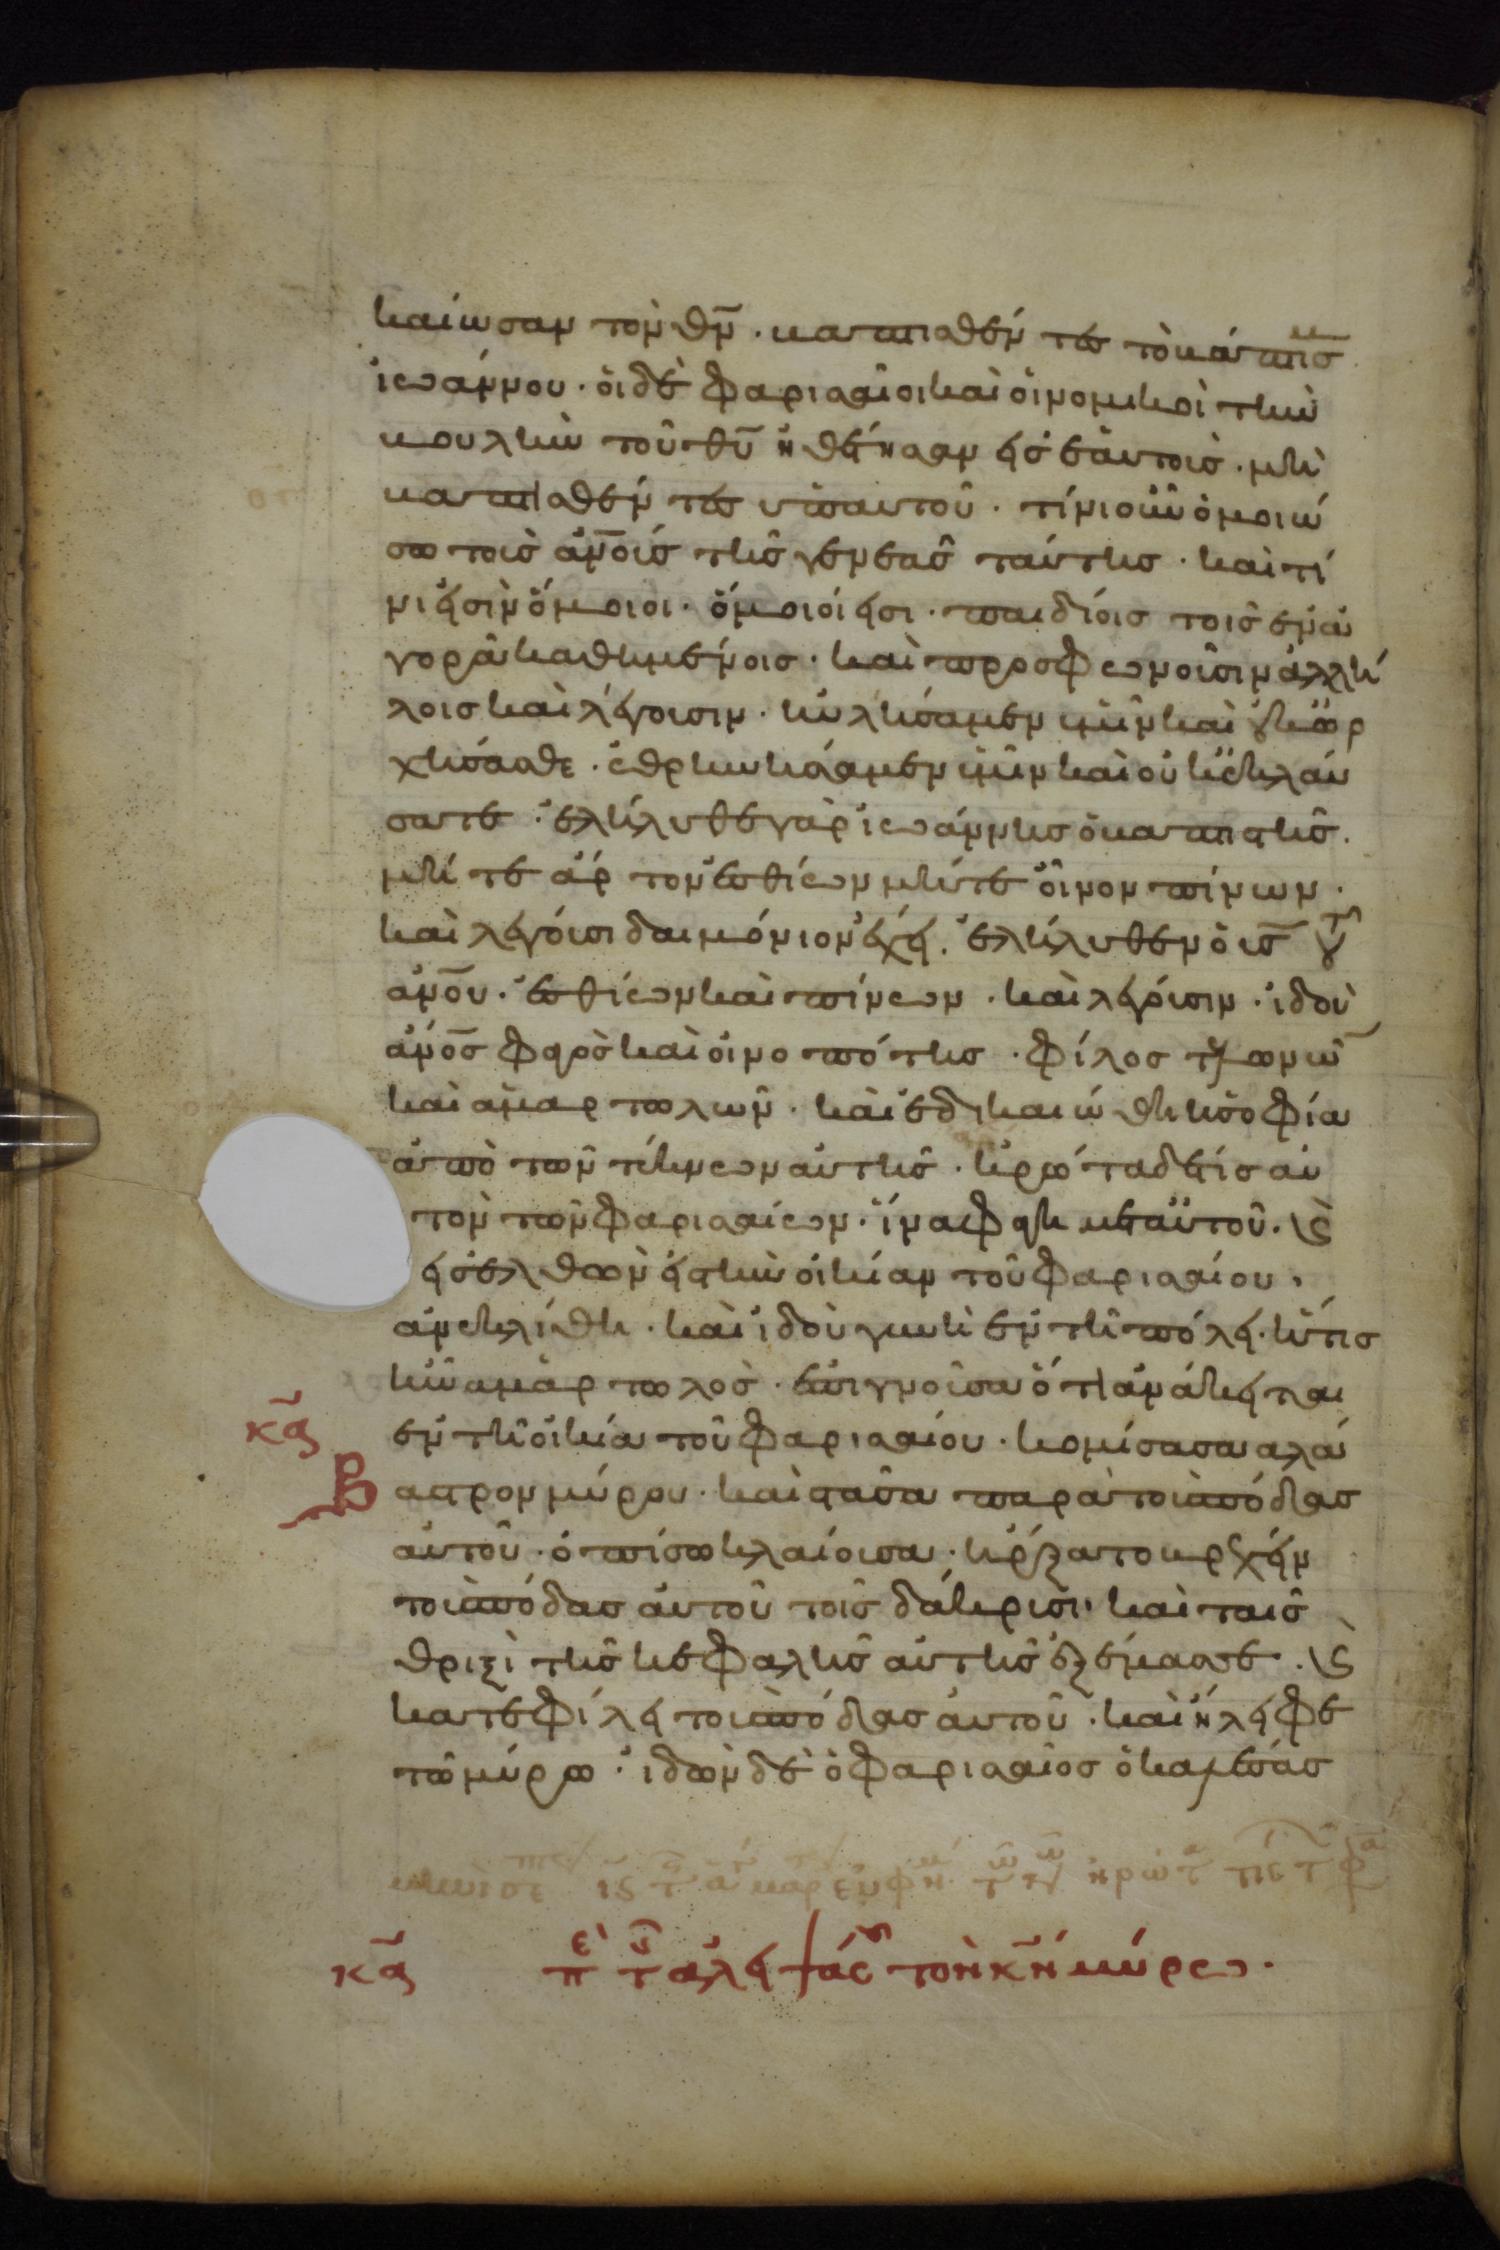 καίωσαν τὸν θν̄ · βαπτισθέντες τὸ βάπτισμα
ἰωάννου · ὁι δὲ φαρισαῖοι καὶ ὁι νομικοὶ τὴν
βουλὴν τοῦ θῡ ἠθέτησαν εἰς ἑαυτοὺς · μὴ
βαπτισθέντες ὑπ αυτοῦ · τίνι οὖν ὁμοιώ
σω τοὺς ἀνο̄υς τῆς γενεᾶς ταύτης · καὶ τί
νι εἰσὶν ὅμοιοι · ὅμοιοί εἰσι · παιδίοις τοῖς ἐν ἀ
γορᾶ καθημένοις · καὶ προσφωνοῦσιν ἀλλή
λοις καὶ λέγουσιν · ηὐλήσαμεν ὑμῖν καὶ οὐκ ὠρ
χήσασθε · ἐθρηνήσαμεν ὑμῖν καὶ οὐκ ἐκλαύ
σατε · ἐλήλυθε γὰρ ἰωάννης ὁ βαπτιστὴς ·
μήτε ἄρτον ἐσθίων μήτε οἶνον πίνων ·
καὶ λέγουσι δαιμόνιον ἔχει · ἐλήλυθεν ὁ υἱς̄ τοῦ
ἀνο̄υ · ἐσθίων καὶ πίνων · καὶ λέγουσιν · ἰδοὺ
ἀνο̄ς φάγος καὶ οἰνοπότης · φίλος τελωνῶν
καὶ ἁμαρτωλῶν · καὶ ἐδικαιώθη ἡ σοφία
ἀπὸ τῶν τέκνων αὐτῆς · ἠρώτα δέ τις αὐ
τὸν τῶν φαρισαίων · ἵνα φάγη μετ αὐτοῦ · καὶ
εἰσελθὼν εἰς τὴν οἰκίαν τοῦ φαρισαίου ·
ἀνεκλίθη · καὶ ἰδοὺ γυνὴ ἐν τῆ πόλει · ἥτις
ἦν ἁμαρτωλὸς · ἐπιγνοῦσα ὅτι ἀνάκειται
κᾱ
ἐν τῆ οἰκία τοῦ φαρισαίου · κομίσασα ἀλά
β αστρον μύρου · καὶ στᾶσα παρὰ τοὺς πόδας
αὐτοῦ · ὀπίσω κλαίουσα · ἤρξατο βρέχειν
τοὺς πόδας αὐτοῦ τοῖς δάκρυσι · καὶ ταῖς
θριξὶ τῆς κεφαλῆς αὐτῆς ἐξέμασσε · καὶ
κατεφίλει τοὺς πόδας αὐτοῦ · καὶ ἤλειφε
τῶ μύρω · ἰδὼν δὲ ὁ φαρισαῖος ὁ καλέσας
κᾱ πε τ ἀλειψάσ τὸν κν̄ μύρω ·